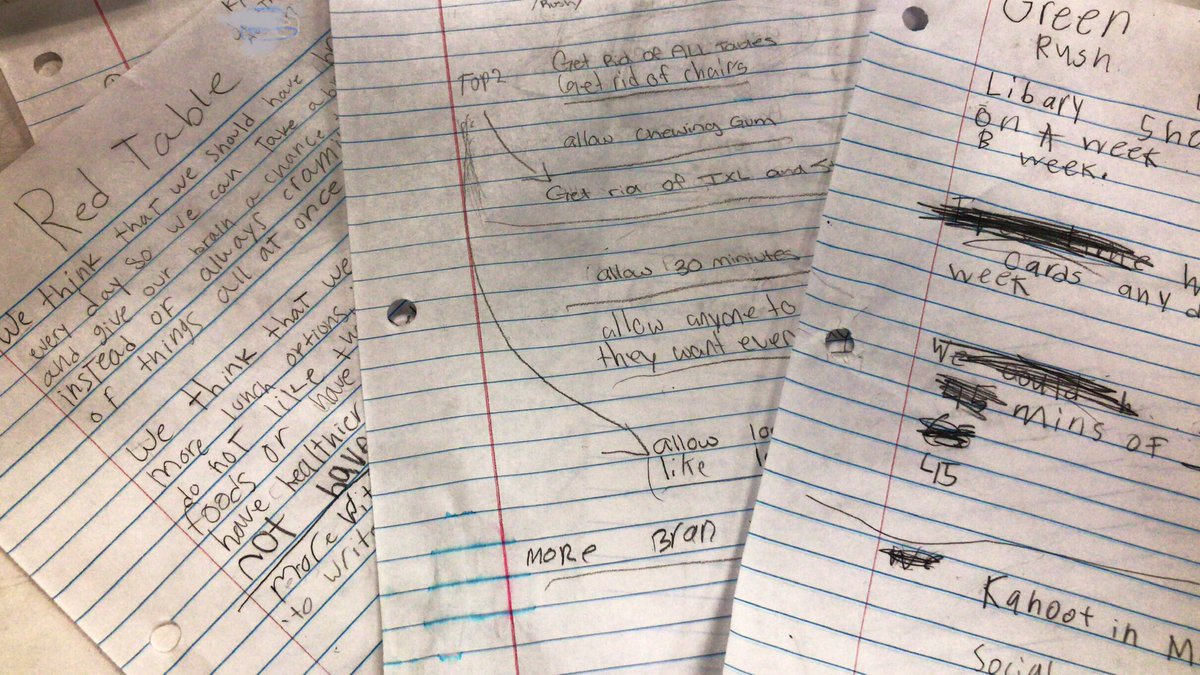 Red Table
We think that we should have
every day so we can Take a b
and give our brain a chance
instead of always crami
of things all at once
We think that we
more lunch options.
do not like th
foods or have th
have healthier
not have
more wit
to writ
(Rush)
TOP 2
Get rid of ALL Tables
Get rid of chairs
allow chewing Gum
Get rid of IXL and
allow 30 miniutes
allow anyone to
they want even
allow
like
MORE Bran
Green
Rush
Libary Sho
On A week
B week.
cards any d
week
mins of
45
Kahoot in M
Social